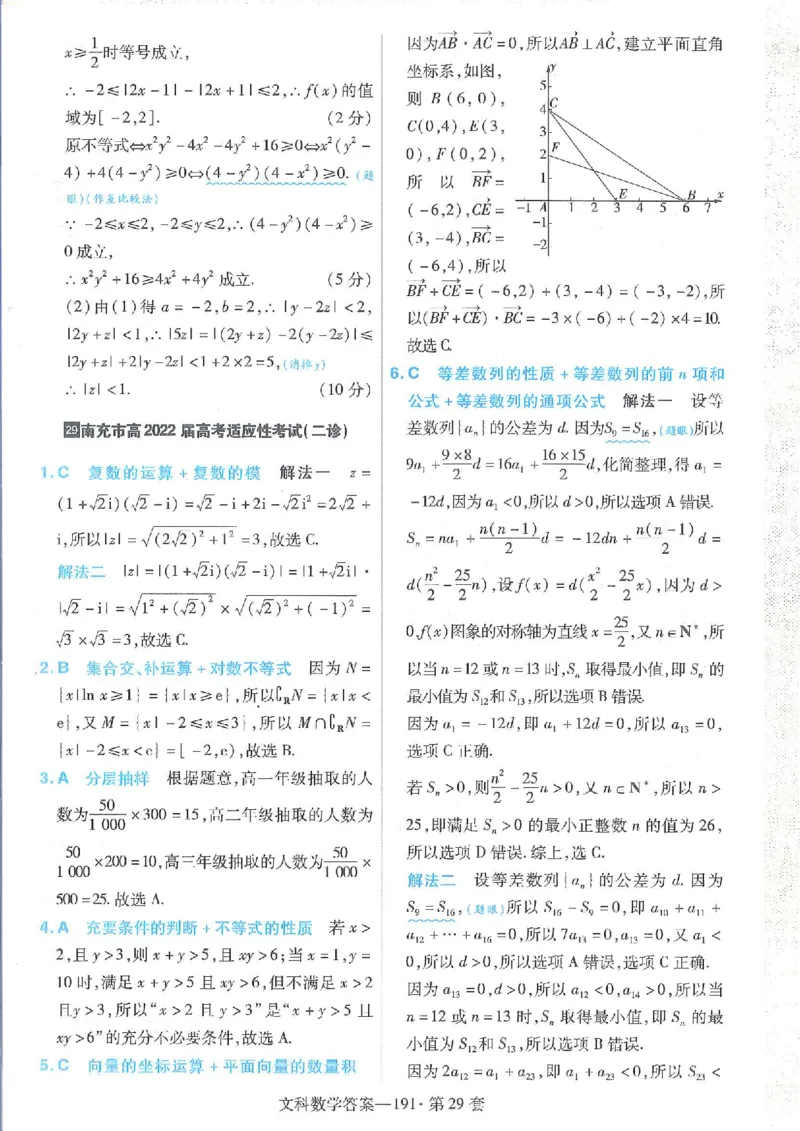 x≥1/2时等号成立,
∴ -2≤|2x-1|-|2x+1|≤2,∴f(x)的值
域为[-2,2]. (2分)
原不等式⇔x²y²-4x²-4y²+16≥0⇔x²(y²-
4)+4(4-y²)≥0⇔(4-y²)(4-x²)≥0.(题
眼)(作差比较法)
∵ -2≤x≤2,-2≤y≤2,∴(4-y²)(4-x²)≥
0成立,
∴x²y²+16≥4x²+4y²成立. (5分)
(2)由(1)得a=-2,b=2,∴|y-2z|<2,
|2y+z|<1,∴|5z|=|(2y+z)-2(y-2z)|≤
|2y+z|+2|y-2z|<1+2×2=5,(消掉y)
∴|z|<1. (10分)
29南充市高2022届高考适应性考试(二诊)
1.C 复数的运算+复数的模 解法一 z=
(1+√2i)(√2-i)=√2-i+2i-√2i²=2√2+
i,所以|z|=√((2√2)²+1²)=3,故选C.
解法二 |z|=|(1+√2i)(√2-i)|=|1+√2i|·
|√2-i|=√(1²+(√2)²)×√((√2)²+(-1)²)=
√3×√3=3,故选C.
2.B 集合交、补运算+对数不等式 因为N=
{x|ln x≥1}={x|x≥e},所以∁RN={x|x<
e},又M={x|-2≤x≤3},所以M∩∁RN=
{x|-2≤x<e}=[-2,e),故选B.
3.A 分层抽样 根据题意,高一年级抽取的人
数为50/1 000×300=15,高二年级抽取的人数为
50/1 000×200=10,高三年级抽取的人数为50/1 000×
500=25.故选A.
4.A 充要条件的判断+不等式的性质 若x>
2,且y>3,则x+y>5,且xy>6;当x=1,y=
10时,满足x+y>5且xy>6,但不满足x>2
且y>3,所以“x>2且y>3”是“x+y>5且
xy>6”的充分不必要条件,故选A.
5.C 向量的坐标运算+平面向量的数量积
因为AB·AC=0,所以AB⊥AC,建立平面直角
坐标系,如图,
则B(6,0),
C(0,4),E(3,
0),F(0,2),
所以BF=
(-6,2),CE=
(3,-4),BC=
(-6,4),所以
y
5
4 C
3
2 F
1
E B x
-1 A 1 2 3 4 5 6 7
-1
-2
BF+CE=(-6,2)+(3,-4)=(-3,-2),所
以(BF+CE)·BC=-3×(-6)+(-2)×4=10.
故选C.
6.C 等差数列的性质+等差数列的前n项和
公式+等差数列的通项公式 解法一 设等
差数列{aₙ}的公差为d.因为S₉=S₁₆,(题眼)所以
9a₁+9×8/2d=16a₁+16×15/2d,化简整理,得a₁=
-12d,因为a₁<0,所以d>0,所以选项A错误.
Sₙ=na₁+n(n-1)/2d=-12dn+n(n-1)/2d=
d(n²/2-25/2n),设f(x)=d(x²/2-25/2x),因为d>
0,f(x)图象的对称轴为直线x=25/2,又n∈N*,所
以当n=12或n=13时,Sₙ取得最小值,即Sₙ的
最小值为S₁₂和S₁₃,所以选项B错误.
因为a₁=-12d,即a₁+12d=0,所以a₁₃=0,
选项C正确.
若Sₙ>0,则n²/2-25/2n>0,又n∈N*,所以n>
25,即满足Sₙ>0的最小正整数n的值为26,
所以选项D错误.综上,选C.
解法二 设等差数列{aₙ}的公差为d.因为
S₉=S₁₆,(题眼)所以S₁₆-S₉=0,即a₁₀+a₁₁+
a₁₂+⋯+a₁₆=0,所以7a₁₃=0,a₁₃=0,又a₁<
0,所以d>0,所以选项A错误,选项C正确.
因为a₁₃=0,d>0,所以a₁₂<0,a₁₄>0,所以当
n=12或n=13时,Sₙ取得最小值,即Sₙ的最
小值为S₁₂和S₁₃,所以选项B错误.
因为2a₁₂=a₁+a₂₃,即a₁+a₂₃<0,所以S₂₃<
文科数学答案—191·第29套